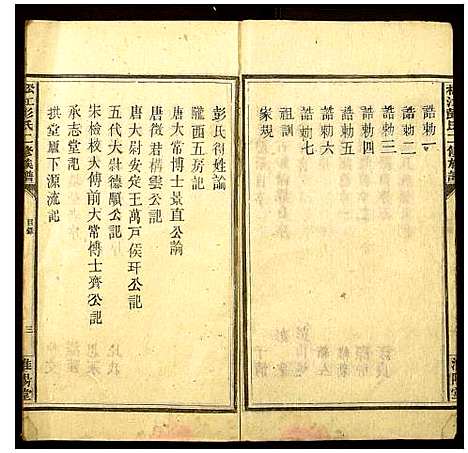 誥勅一
誥勅二
誥勅三
誥勅四
誥勅五
誥勅六
誥勅七
家規
彭氏得姓論
隴西五房記
唐太常博士景直公論
唐徵君構雲公記
唐太尉安定王萬戸侯玕公記
五代太尉德顒公記
宋檢校太傅前太常博士齊公記
承志堂記
拱堂厦下源流記
松江彭氏二修族譜
目錄
三
淮陽堂